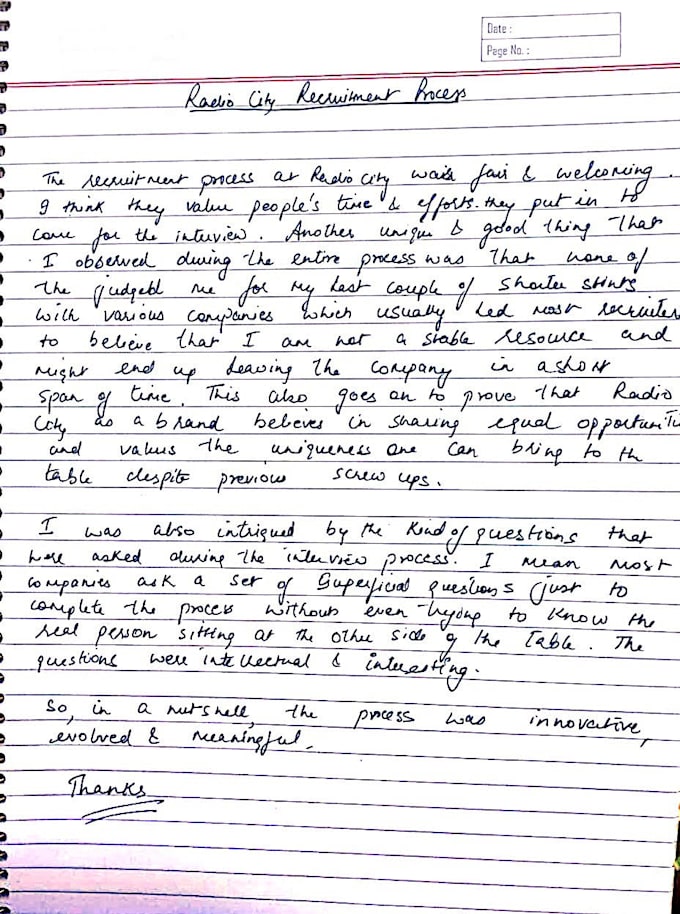 Date :
Page No. :
Radio City Recruitment Process
The recruitment process at Radio City was fair & welcoming.
I think they value people's time & efforts they put in to
come for the interview. Another unique & good thing that
I observed during the entire process was that none of
the judged me for my last couple of shorter stints
with various companies which usually led most recruiters
to believe that I am not a stable resource and
might end up leaving the company in a short
span of time. This also goes on to prove that Radio
City as a brand believes in sharing equal opportuniti
and values the uniqueness one can bring to the
table despite previous screw ups.
I was also intrigued by the kind of questions that
were asked during the interview process. I mean most
companies ask a set of superficial questions just to
complete the process without even trying to know the
real person sitting at the other side of the table. The
questions were intellectual & interesting.
So, in a nutshell, the process was innovative,
evolved & meaningful.
Thanks